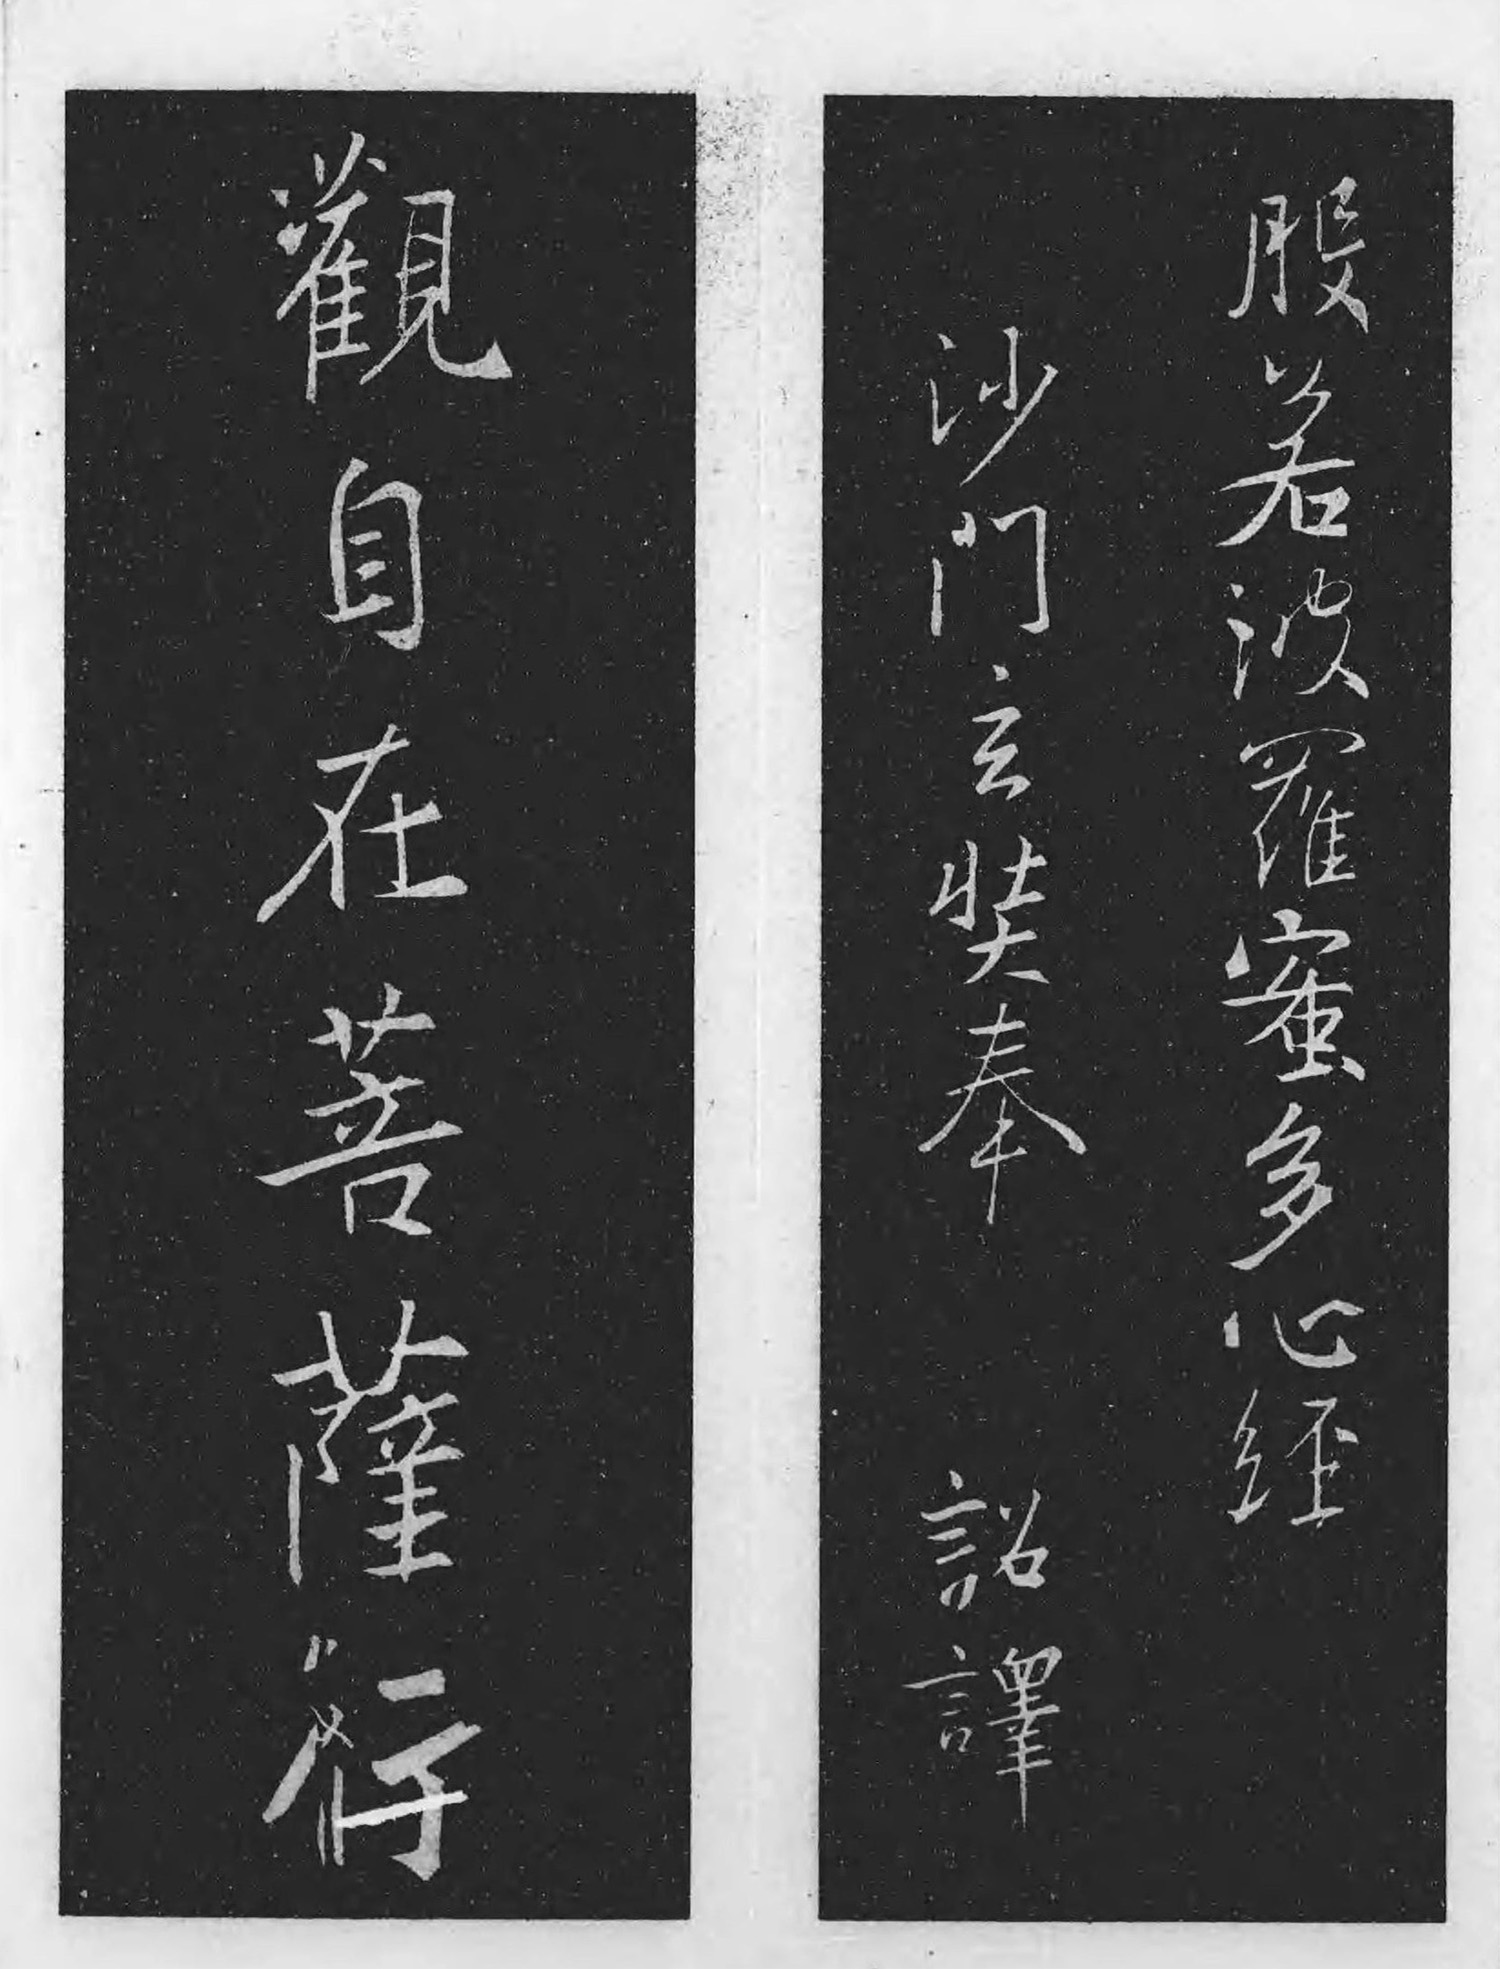 般若波羅蜜多心經
沙門玄奘奉 詔譯
觀自在菩薩行